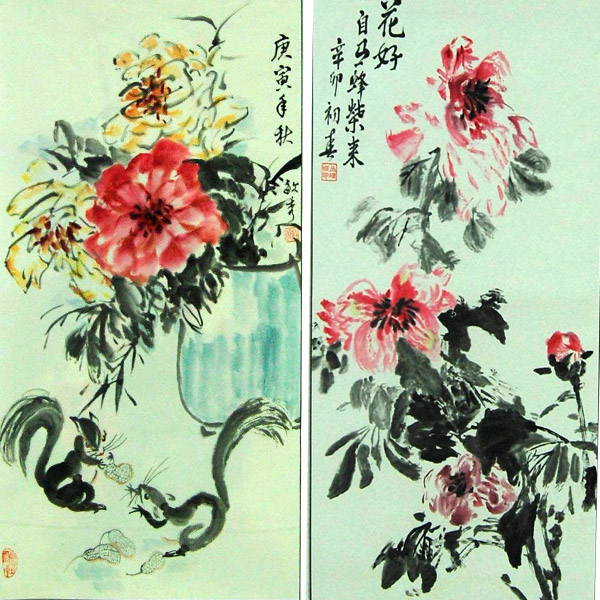 庚寅年秋
花好
自有蜂蝶来
辛卯初春